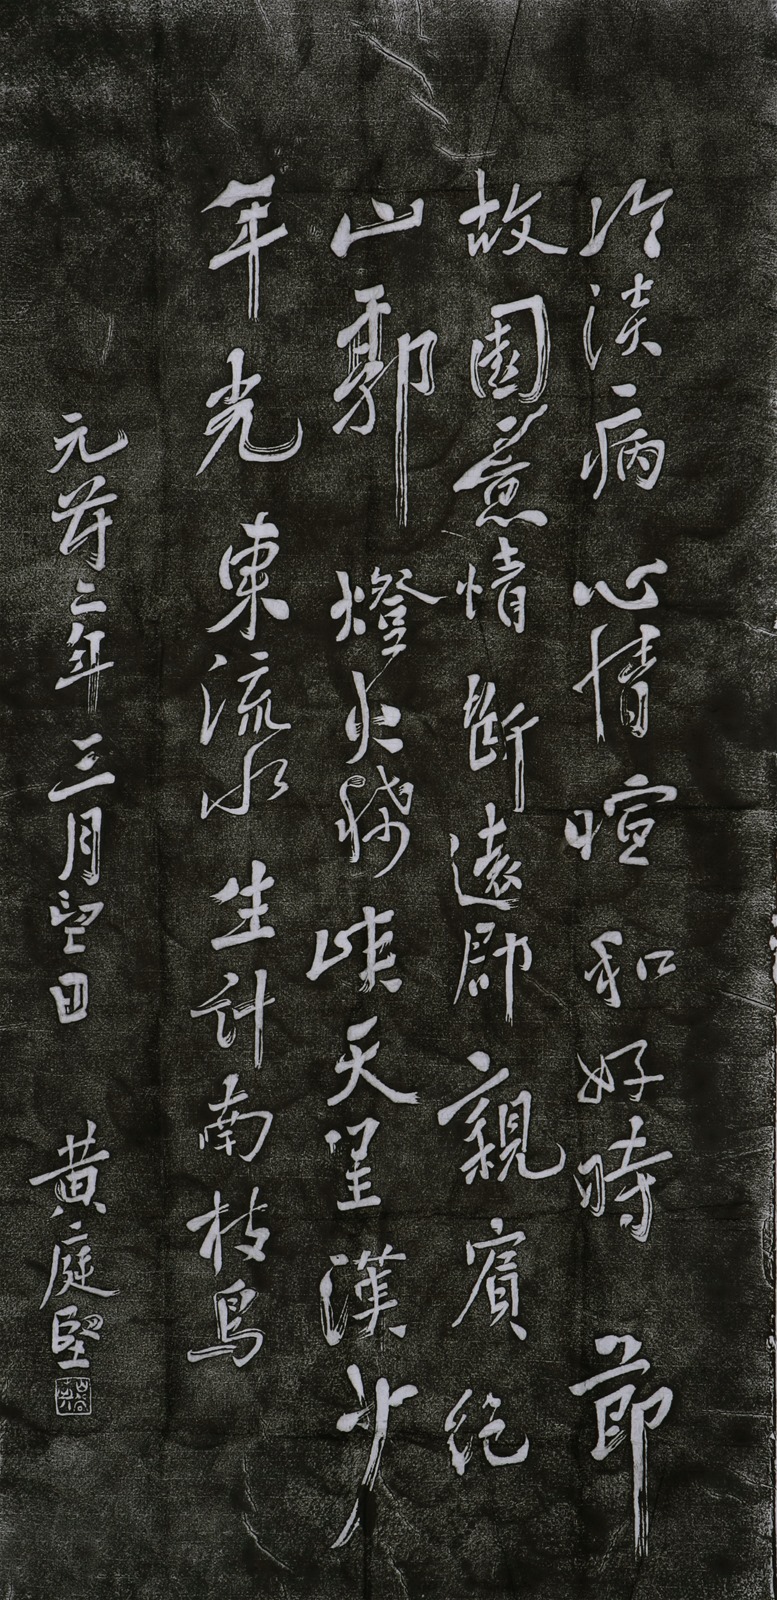 冷淡病心情暄和好時節
故園意情斷遠郡親賓絕
山郭燈火稀峽天星漢少
年光東流水生計南枝鳥
元符二年三月望日 黃庭堅